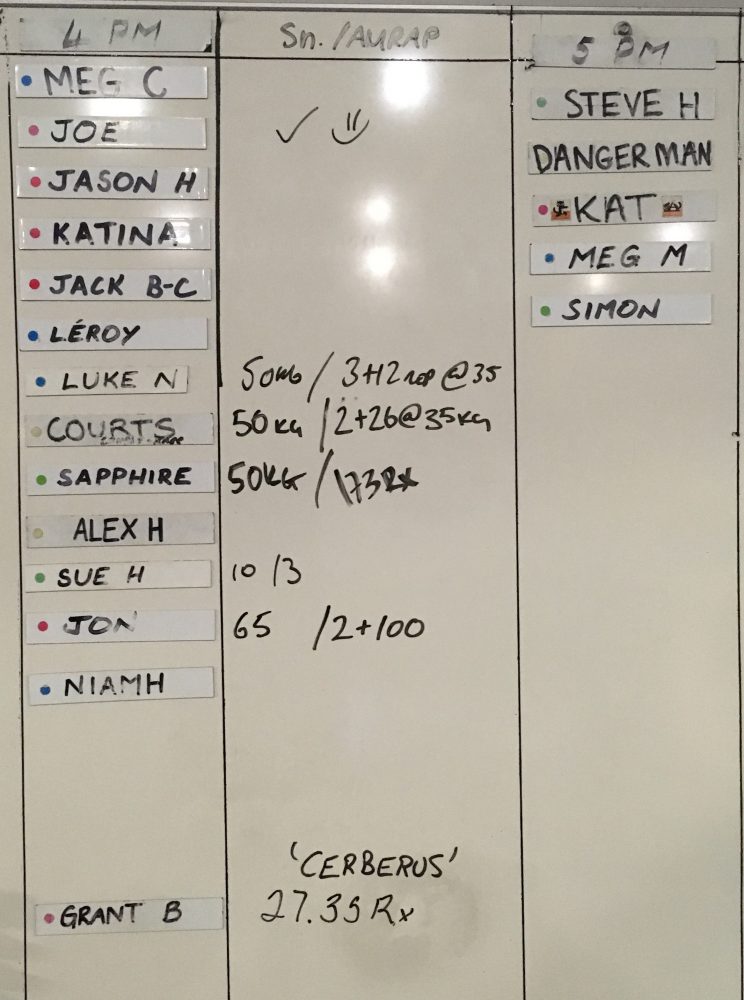 4 PM Sn./AMRAP 5 PM
MEG C
STEVE H
JOE ✓
DANGERMAN
JASON H
KATINA
KAT
JACK B-C
MEG M
LÉROY
SIMON
LUKE N 50kg / 3+12 rep @35
COURTS 50kg / 2+26@35kg
SAPPHIRE 50KG / 173 Rx
ALEX H
SUE H 10 / 3
JON 65 / 2+100
NIAMH
'CERBERUS'
GRANT B 27.35 Rx